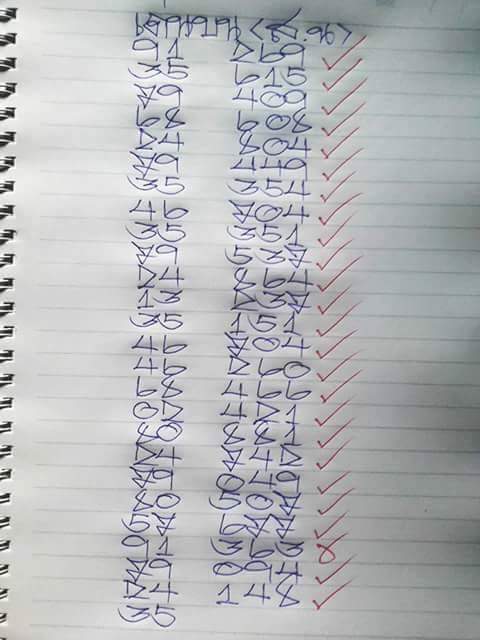 91 269
35 615
79 409
68 608
24 804
79 449
35 354
46 704
35 351
79 537
24 864
13 237
35 151
46 704
46 260
68 466
02 421
80 881
24 742
79 049
80 507
57 677
91 363
79 094
24 148
35